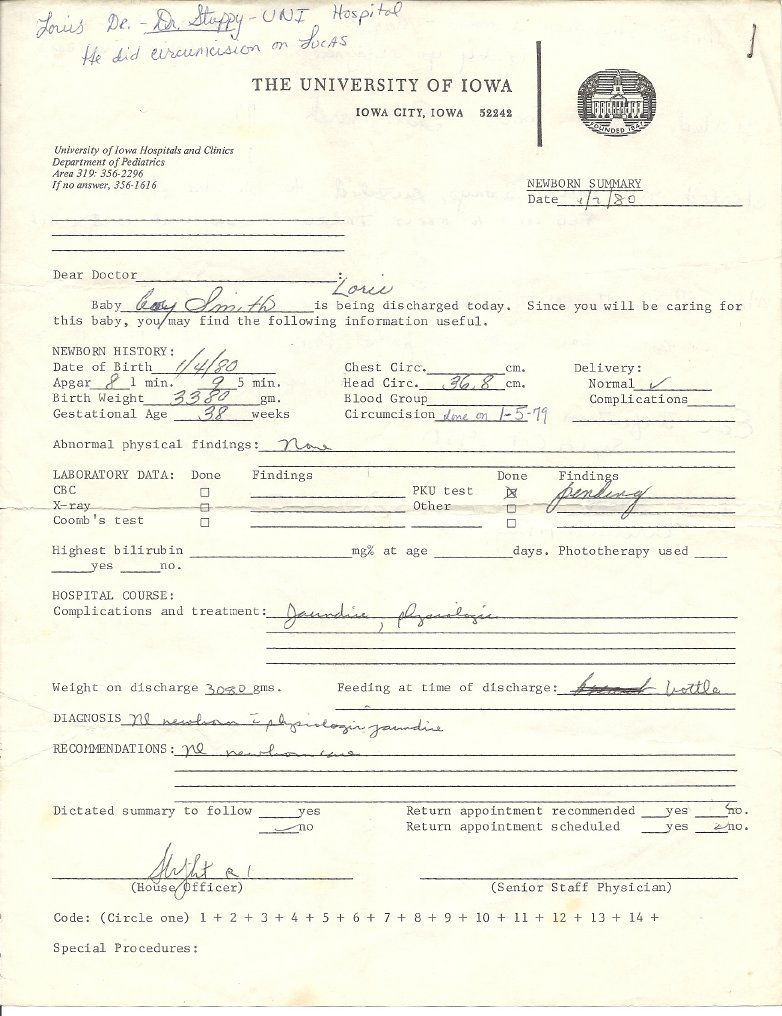 Loris De. - Dr. Stuppy - UNI Hospital
He did circumcision on LUCAS
THE UNIVERSITY OF IOWA
IOWA CITY, IOWA 52242
FOUNDED 1847
University of Iowa Hospitals and Clinics
Department of Pediatrics
Area 319: 356-2296
If no answer, 356-1616
NEWBORN SUMMARY
Date 1/7/80
Dear Doctor :
Loris
Baby boy Smith is being discharged today. Since you will be caring for
this baby, you may find the following information useful.
NEWBORN HISTORY:
Date of Birth 1/4/80 Chest Circ. cm. Delivery:
Apgar 8 1 min. 9 5 min. Head Circ. 36.8 cm. Normal ✓
Birth Weight 3380 gm. Blood Group Complications
Gestational Age 38 weeks Circumcision done on 1-5-79
Abnormal physical findings: None
LABORATORY DATA: Done Findings Done Findings
CBC ☐ PKU test ☒ pending
X-ray ☐ Other ☐
Coomb's test ☐ ☐
Highest bilirubin mg% at age days. Phototherapy used
yes no.
HOSPITAL COURSE:
Complications and treatment: Jaundice, physiologic
Weight on discharge 3080 gms. Feeding at time of discharge: breast bottle
DIAGNOSIS Nl newborn c̄ physiologic jaundice
RECOMMENDATIONS: Nl newborn care
Dictated summary to follow yes Return appointment recommended yes ✓ no.
✓ no Return appointment scheduled yes ✓ no.
R1
(House Officer) (Senior Staff Physician)
Code: (Circle one) 1 + 2 + 3 + 4 + 5 + 6 + 7 + 8 + 9 + 10 + 11 + 12 + 13 + 14 +
Special Procedures: